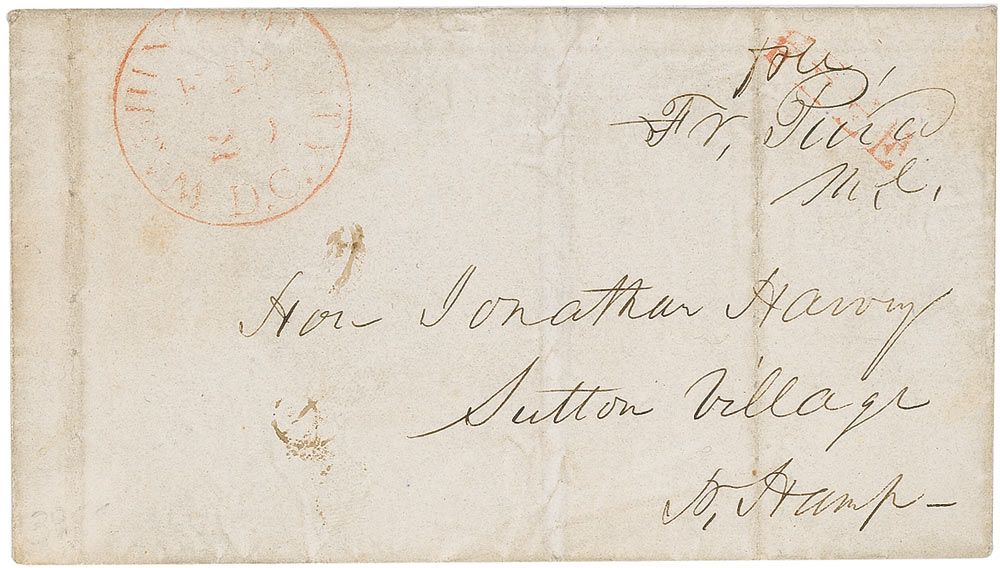 free
Fr, Pierce
M.C.
FREE
D.C.
Hon Jonathan Harvey
Sutton Village
N, Hamp –